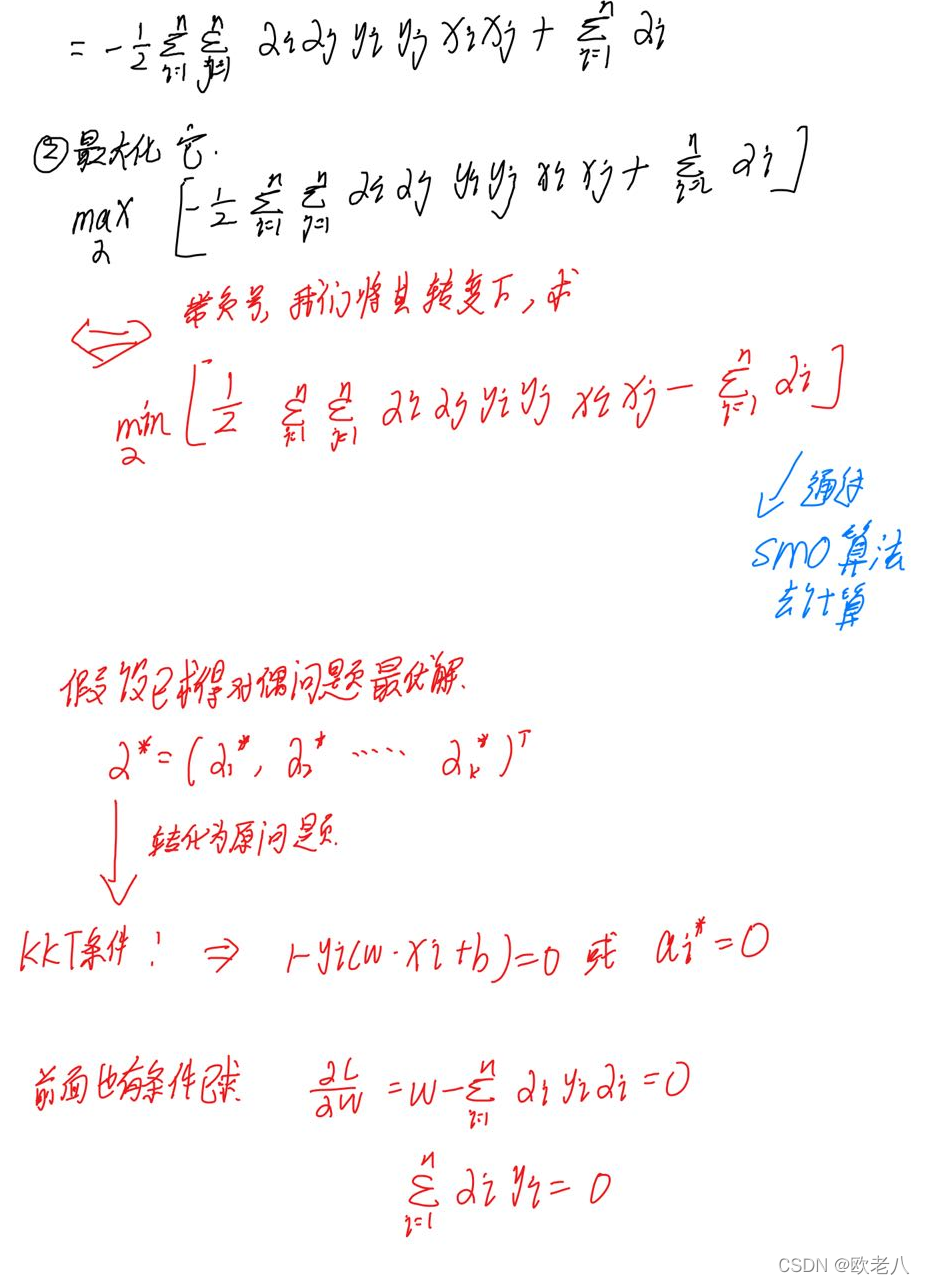 = -1/2 Σ_{i=1}^{n} Σ_{j=1}^{n} αi αj yi yj xi xj + Σ_{i=1}^{n} αi
②最大化它.
max_α [-1/2 Σ_{i=1}^{n} Σ_{j=1}^{n} αi αj yi yj xi xj + Σ_{i=1}^{n} αi]
带负号, 我们将其转变下, 求
⇔
min_α [1/2 Σ_{i=1}^{n} Σ_{j=1}^{n} αi αj yi yj xi xj - Σ_{i=1}^{n} αi]
通过
SMO算法
去计算
假设已求得对偶问题最优解.
α* = (α1*, α2* …… αk*)^T
转化为原问题.
KKT条件! ⇒ 1-yi(w·xi+b)=0 或 ai*=0
前面也有条件已求 ∂L/∂w = w - Σ_{i=1}^{n} αi yi αi = 0
Σ_{i=1}^{n} αi yi = 0
CSDN @欧老八